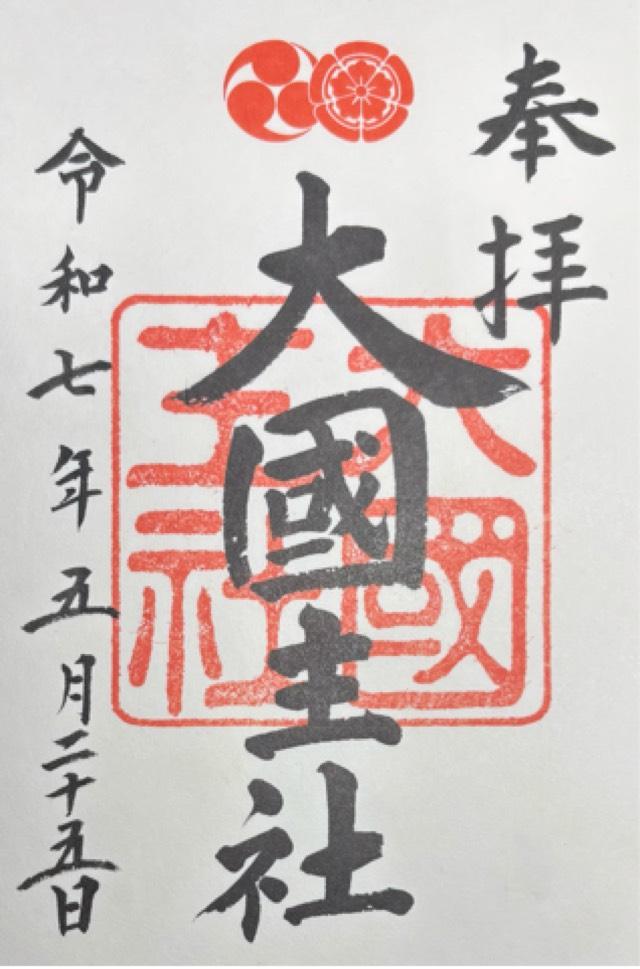 奉拝
大國主社
大國主社
令和七年五月二十五日